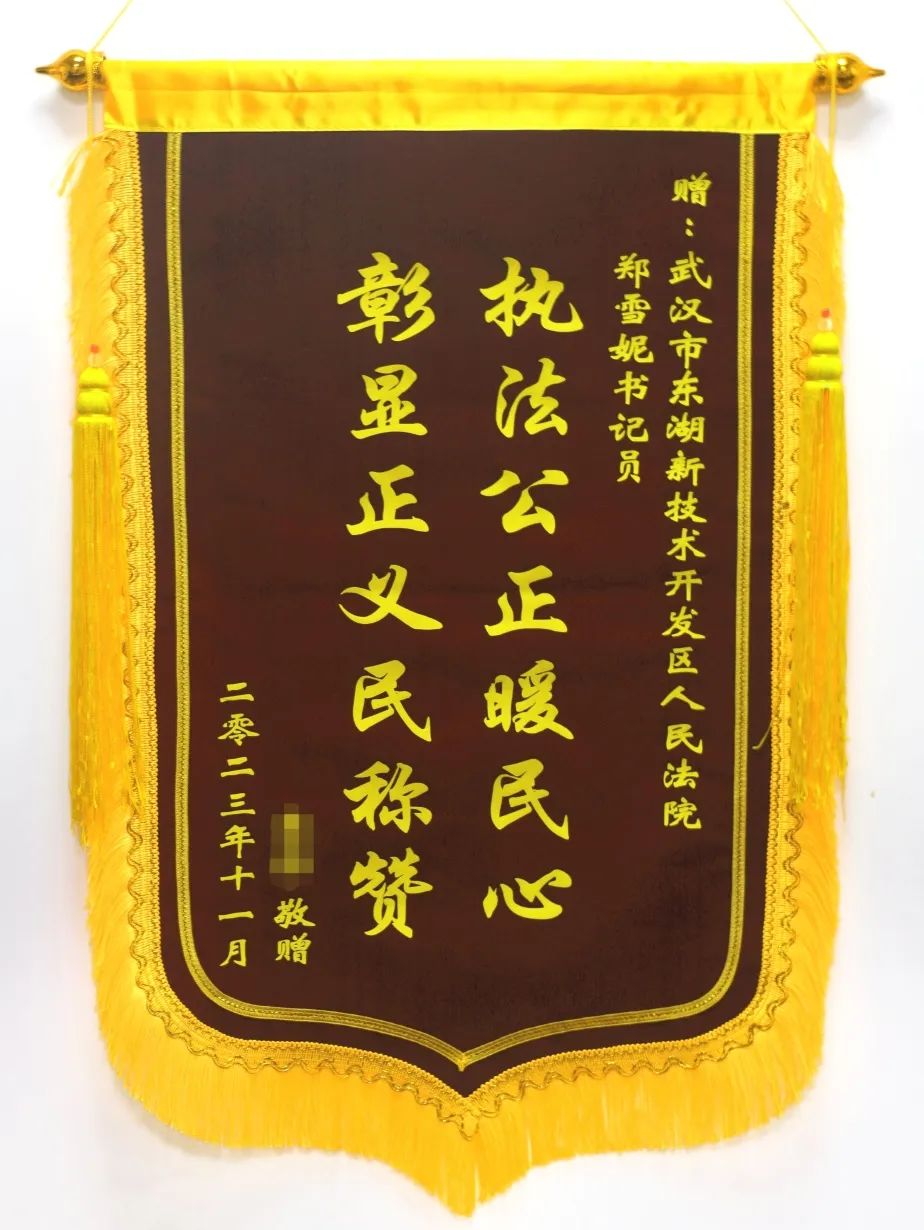 赠：武汉市东湖新技术开发区人民法院
郑雪妮书记员
执法公正暖民心
彰显正义民称赞
敬赠
二零二三年十一月